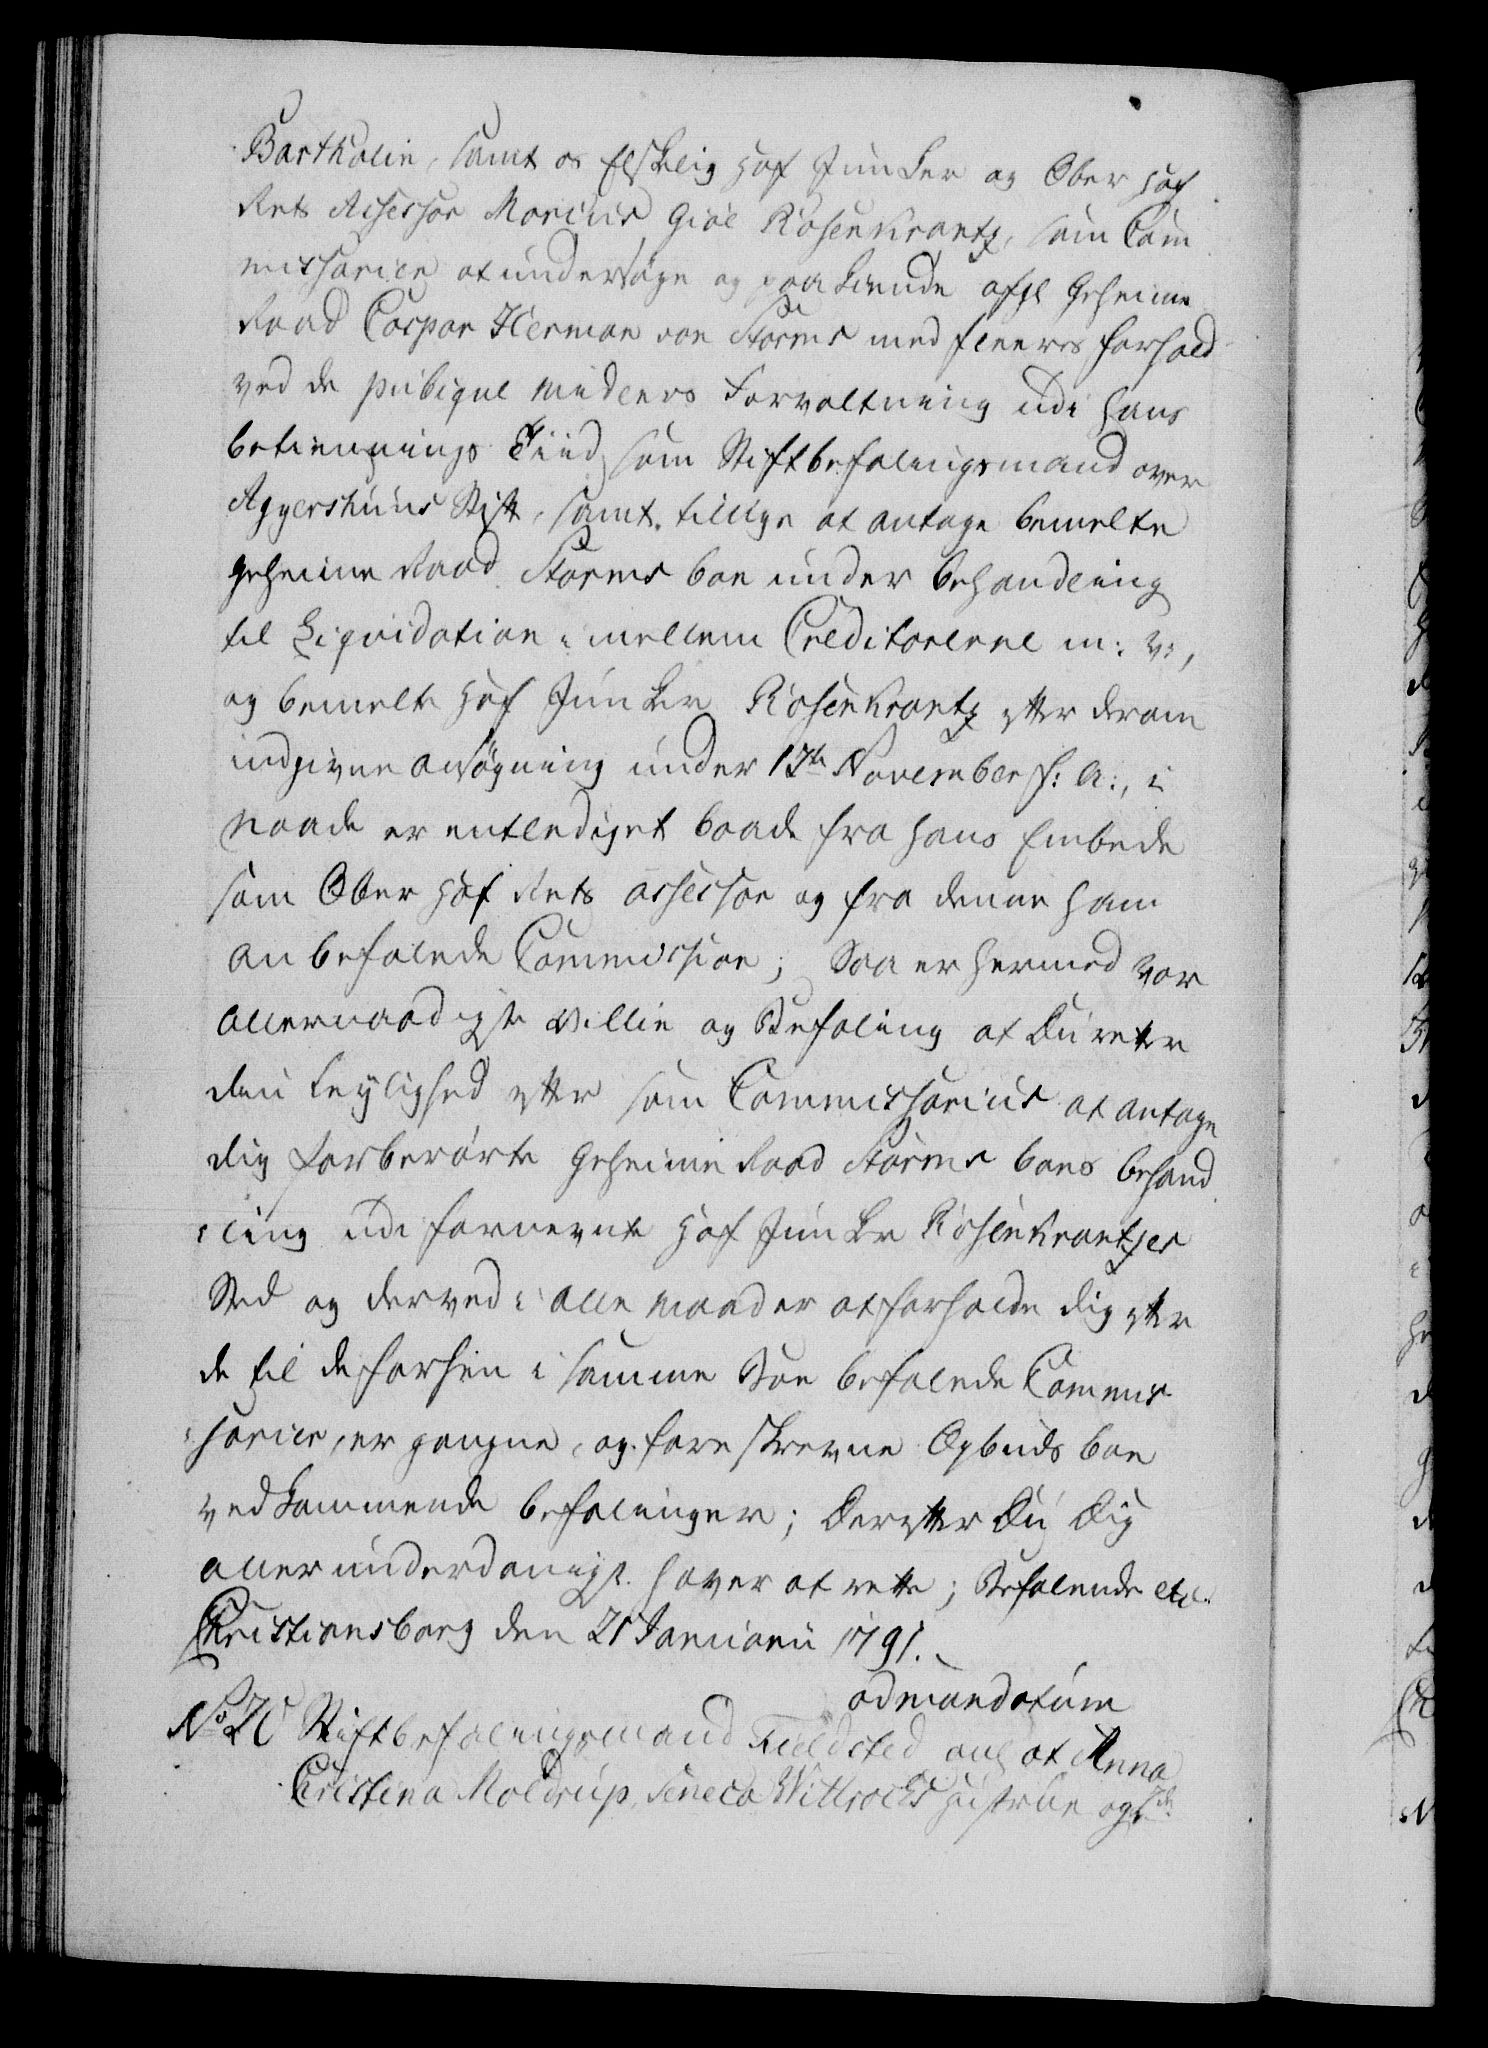 Bartholin, samt os Elskelig Hof Junker og Ober Hof
Rets Assessor Marcus Giøe Rosenkrantz, som Com
missarier at undersøge og paakiende afg. Geheime
Raad Caspar Herman von Storms med fleeres forhold
ved de publique Midlers Forvaltning udi hans
betiennings Tiid som Stiftbefalingsmand over
Aggershuus Stift, samt tillige at antage bemelte
Geheime Raad Storms boe under Behandling
til Liqvidation imellem Creditorerne m: v:,
og bemelte Hof Junker Rosenkrantz efter derom
indgivne ansøgning under 17de November f: A:, i
Naade er entlediget baade fra hans Embede
som Ober Hof Rets Assessor og fra denne ham
anbefalede Commission; Saa er hermed vor
allernaadigste Villie og Befaling at Du retter
din Leylighed efter som Commissarius at antage
dig forberørte Geheime Raad Storms boes behand
ling udi fornevnte Hof Junker Rosenkrantzes
Sted og derved i alle maader at forholde dig efter
de til de forhen i samme Boe befalede Commis
sarier, ergangne, og foreskrevne Opbuds boe
vedkommende befalinger; Derefter Du Dig
allerunderdanigst haver at rette; Befalende etc.
Christiansborg den 21 Januarii 1791.
ad mandatum
No 20 Stiftbefalingsmand Fieldsted anl. at Anna
Cristina Moldrup, Seneca Wittrocks Hustrue og